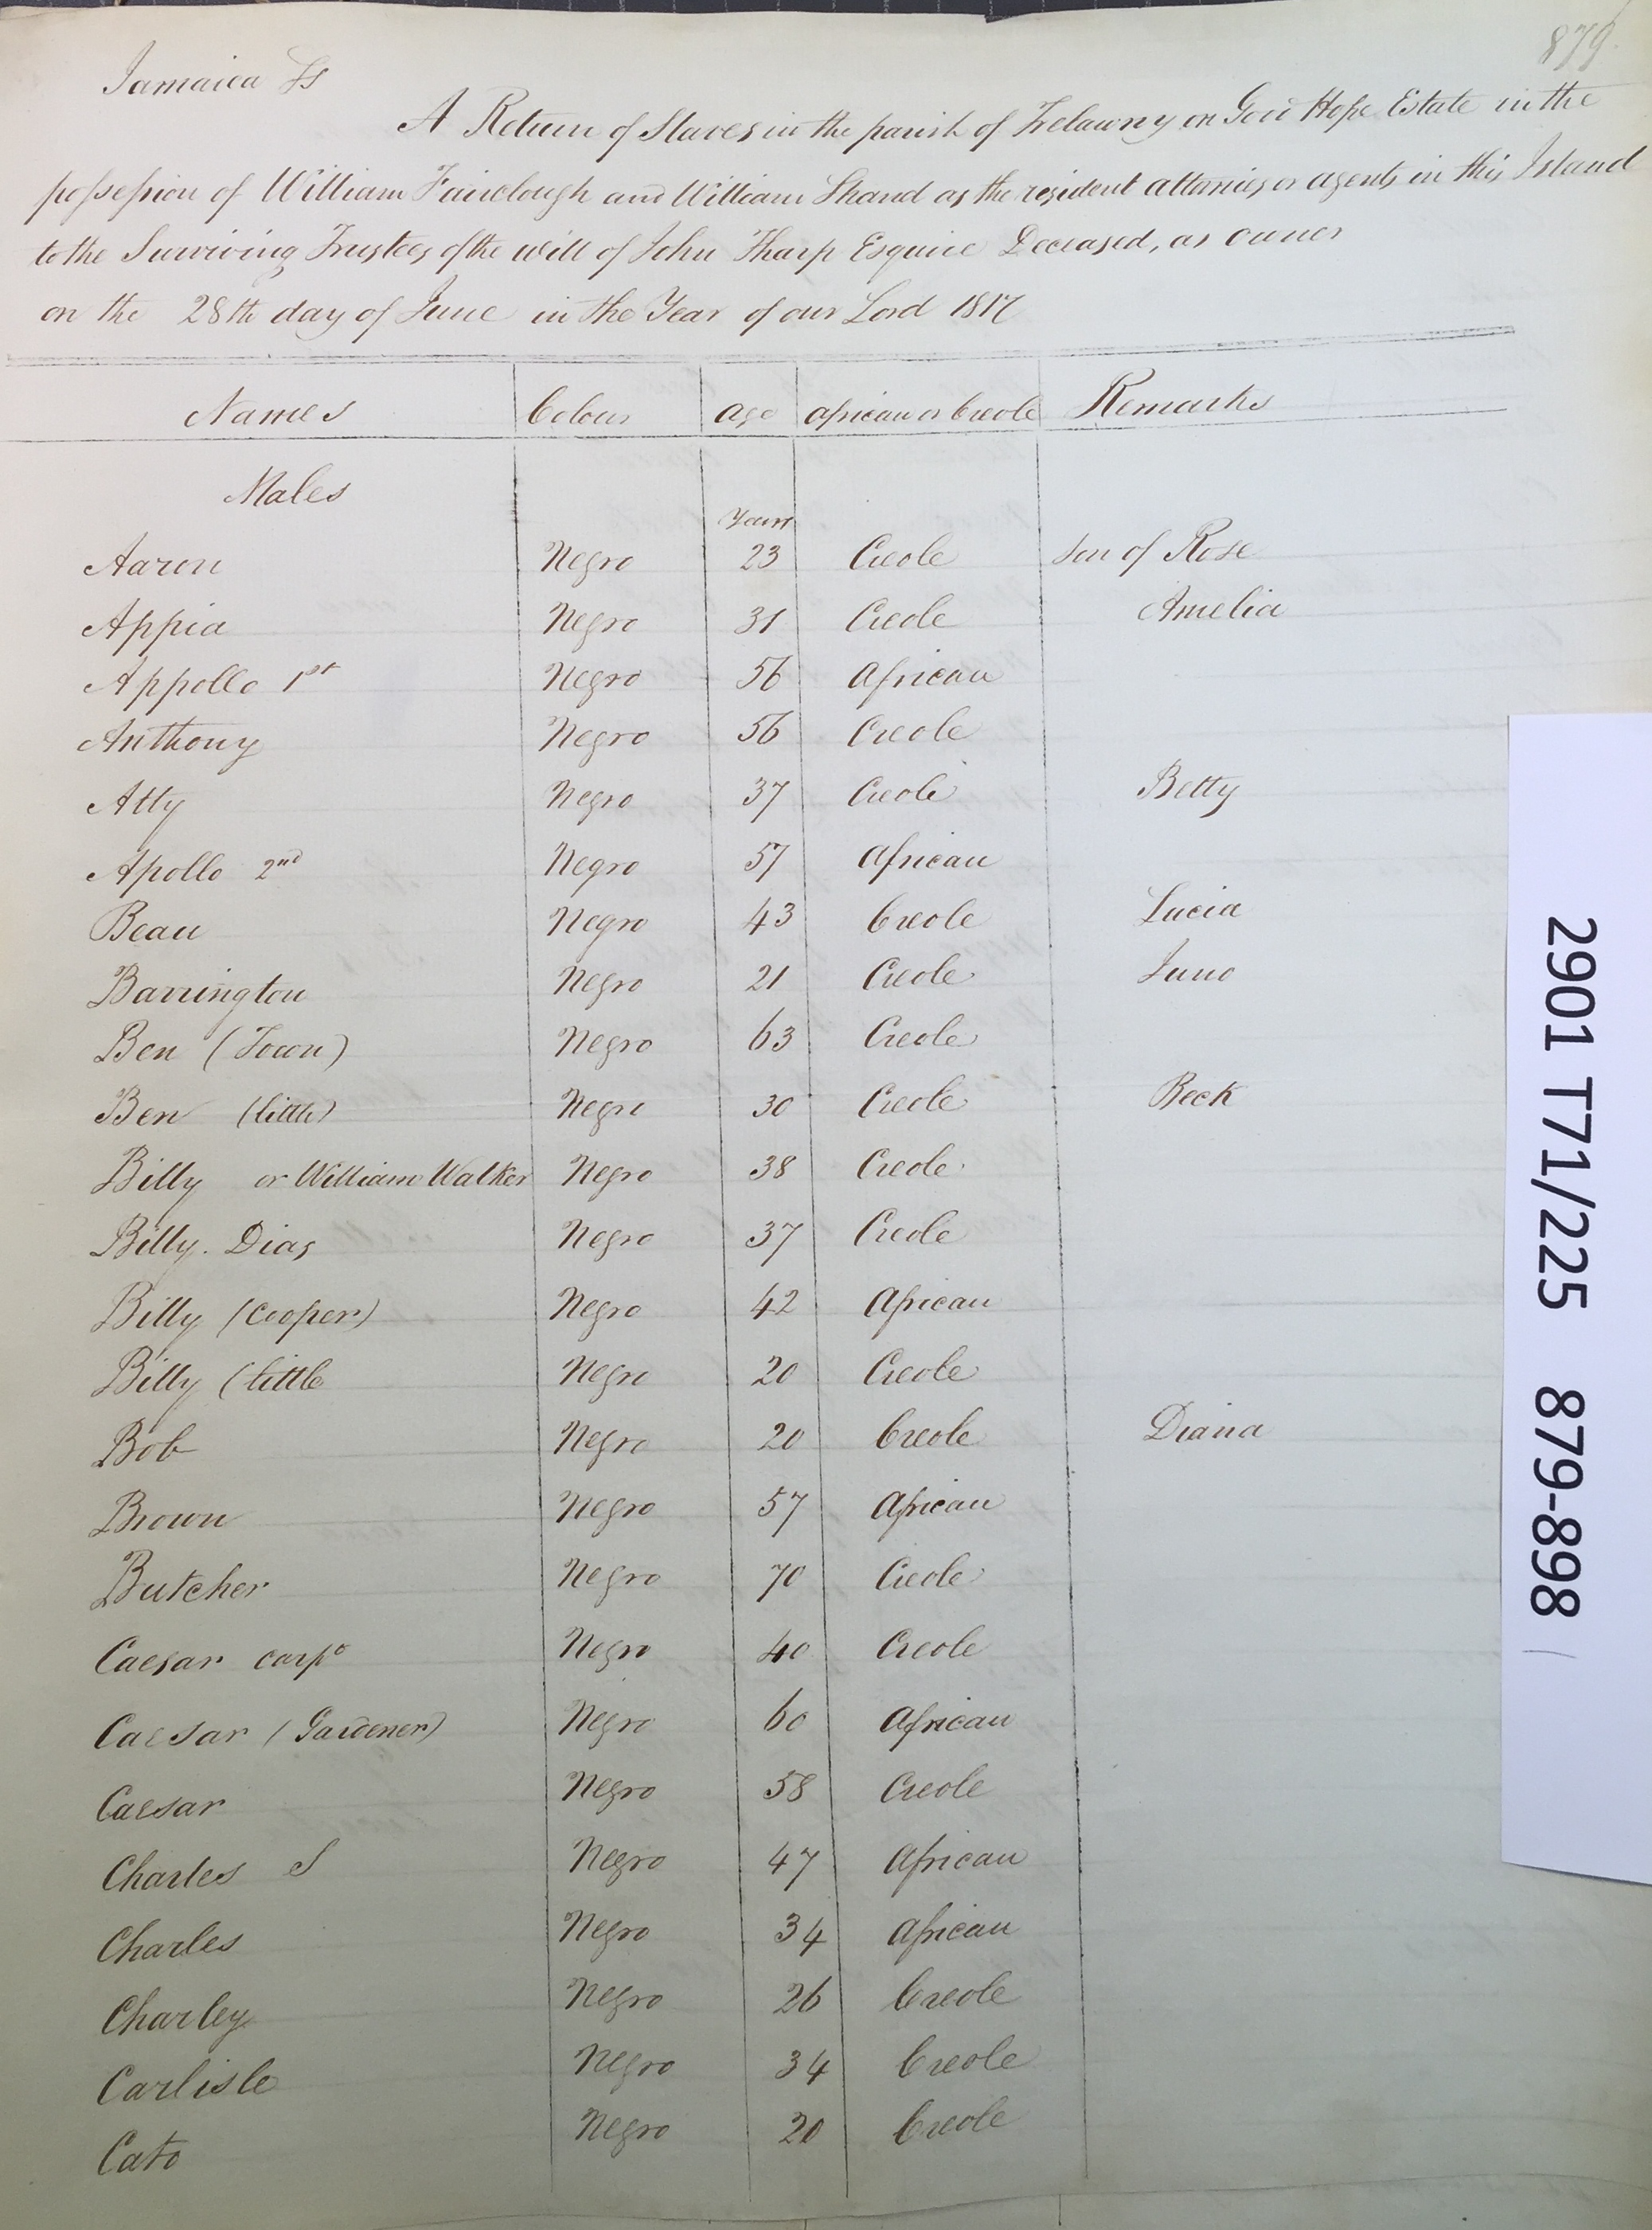 879.
Jamaica Ss
A Return of Slaves in the parish of Trelawny on Good Hope Estate in the
possession of William Fairclough and William Shand as the resident attornies or agents in this Island
to the Surviving Trustees of the will of John Tharp Esquire Deceased, as owner
on the 28th day of June in the Year of our Lord 1817
Names Colour Age African or Creole Remarks
Males
Years
Aaron Negro 23 Creole Son of Rose
Appia Negro 31 Creole Amelia
Appollo 1st Negro 56 African
Anthony Negro 56 Creole
Atty Negro 37 Creole Betty
Apollo 2nd Negro 57 African
Beau Negro 43 Creole Lucia
Barrington Negro 21 Creole Juno
Ben (Town) Negro 63 Creole
Ben (little) Negro 30 Creole Beck
Billy or William Walker Negro 38 Creole
Billy. Dias Negro 37 Creole
Billy (Cooper) Negro 42 African
Billy (little Negro 20 Creole
Bob Negro 20 Creole Diana
Brown Negro 57 African
Butcher Negro 70 Creole
Caesar carpr Negro 40 Creole
Caesar (Gardener) Negro 60 African
Caesar Negro 58 Creole
Charles S Negro 47 African
Charles Negro 34 African
Charley Negro 26 Creole
Carlisle Negro 34 Creole
Cato Negro 20 Creole
2901 T71/225 879-898